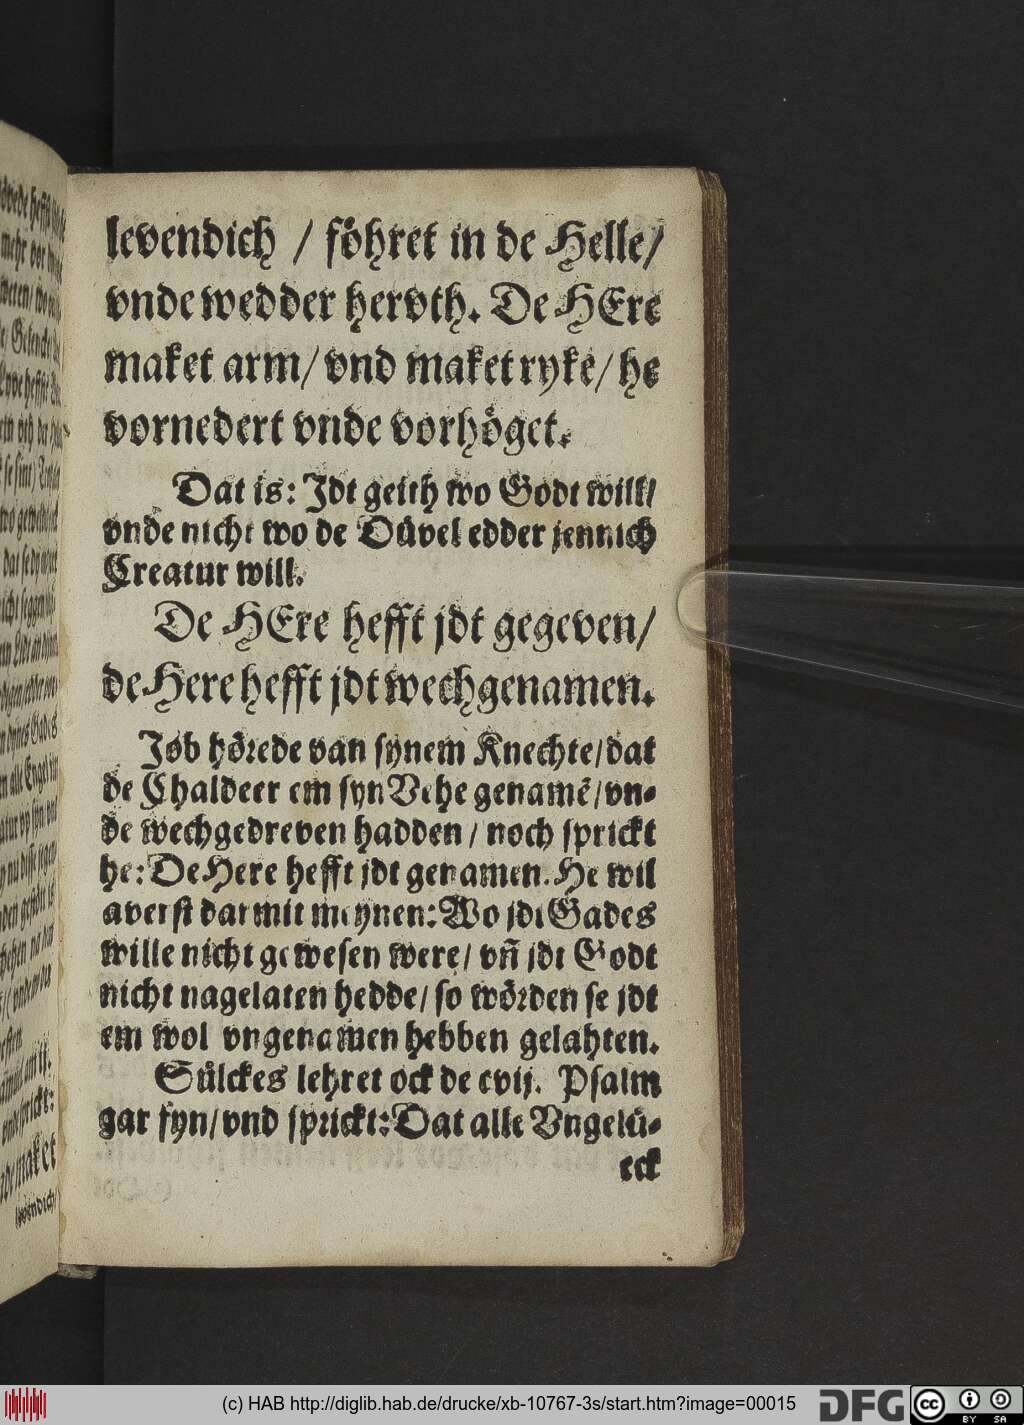 levendich / föhret in de Helle/
vnde wedder hervth. De HEre
maket arm/ vnd maket ryke/ he
vornedert vnde vorhöget.
Dat is: Jdt geith wo Godt will/
vnde nicht wo de Düvel edder jennich
Creatur will.
De HEre hefft jdt gegeven/
de Here hefft jdt wechgenamen.
Job hörede van synem Knechte/ dat
de Chaldeer em syn Vehe genamē/ vn-
de wechgedreven hadden / noch sprickt
he: De Here hefft jdt genamen. He wil
averst darmit meynen: Wo jdt Gades
wille nicht gewesen were/ vñ jdt Godt
nicht nagelaten hedde/ so wörden se jdt
em wol vngenamen hebben gelahten.
Sülckes lehret ock de cvij. Psalm
gar fyn/ vnd sprickt: Dat alle Vngelü-
eck
(c) HAB http://diglib.hab.de/drucke/xb-10767-3s/start.htm?image=00015
DFG
cc
BY SA